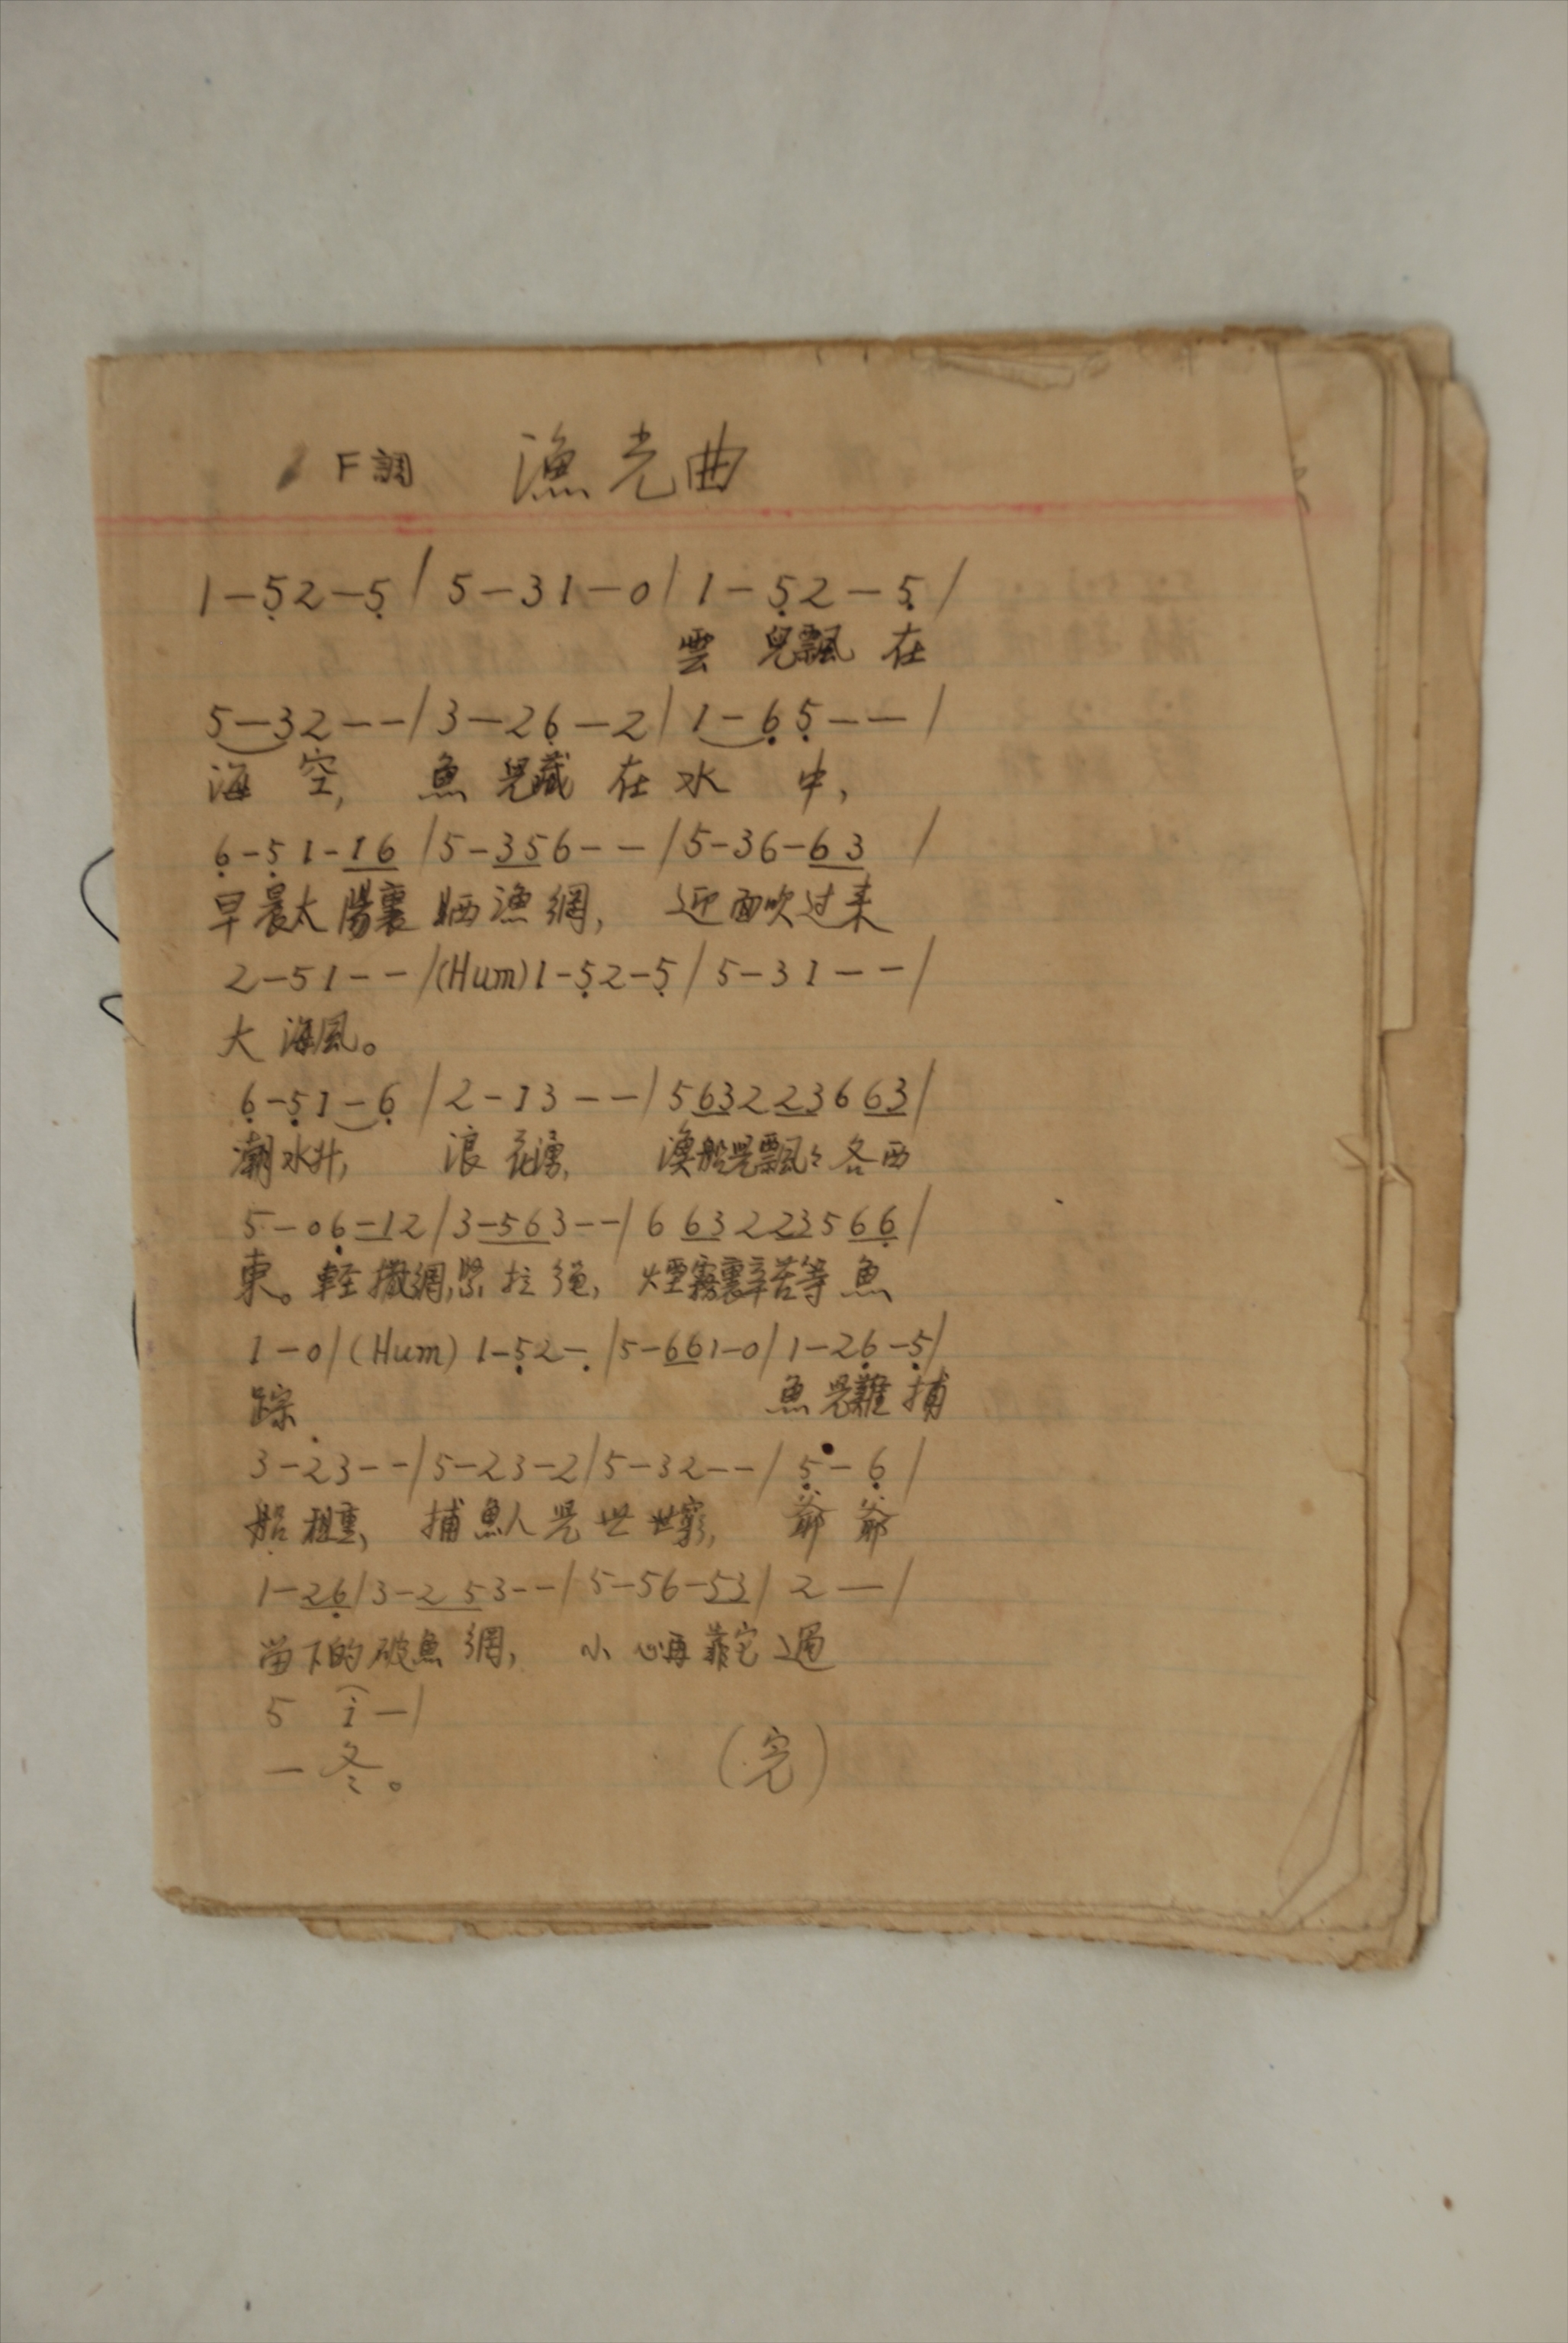 F調 漁光曲
1-5̣2-5̣/5-31-0/1-5̣2-5̣/
雲 兒飄 在
5-32--/3-26̣-2/1-6̣5̣--/
海 空, 魚 兒藏 在 水 中,
6̣-5̣1-16/5-356--/5-36-63/
早晨太陽裏晒漁網, 迎面吹过来
2-51--/(Hum)1-5̣2-5̣/5-31--/
大海風。
6̣-5̣1-6̣/2-13--/563223663/
潮水升, 浪花湧, 漁船兒飄々各西
5-06̣-12/3-563--/663223566̣/
東。輕撒網,緊拉繩, 煙霧裏辛苦等魚
1-0/(Hum)1-5̣2-./5-661-0/1-26̣-5̣/
踪 魚兒難捕
3-23--/5-23-2/5-32--/5̣-6̣/
船租重, 捕魚人兒世世窮, 爺爺
1-26̣/3-253--/5-56-53/2—/
留下的破魚網, 小心再靠它過
5 i-/
一冬。 (完)